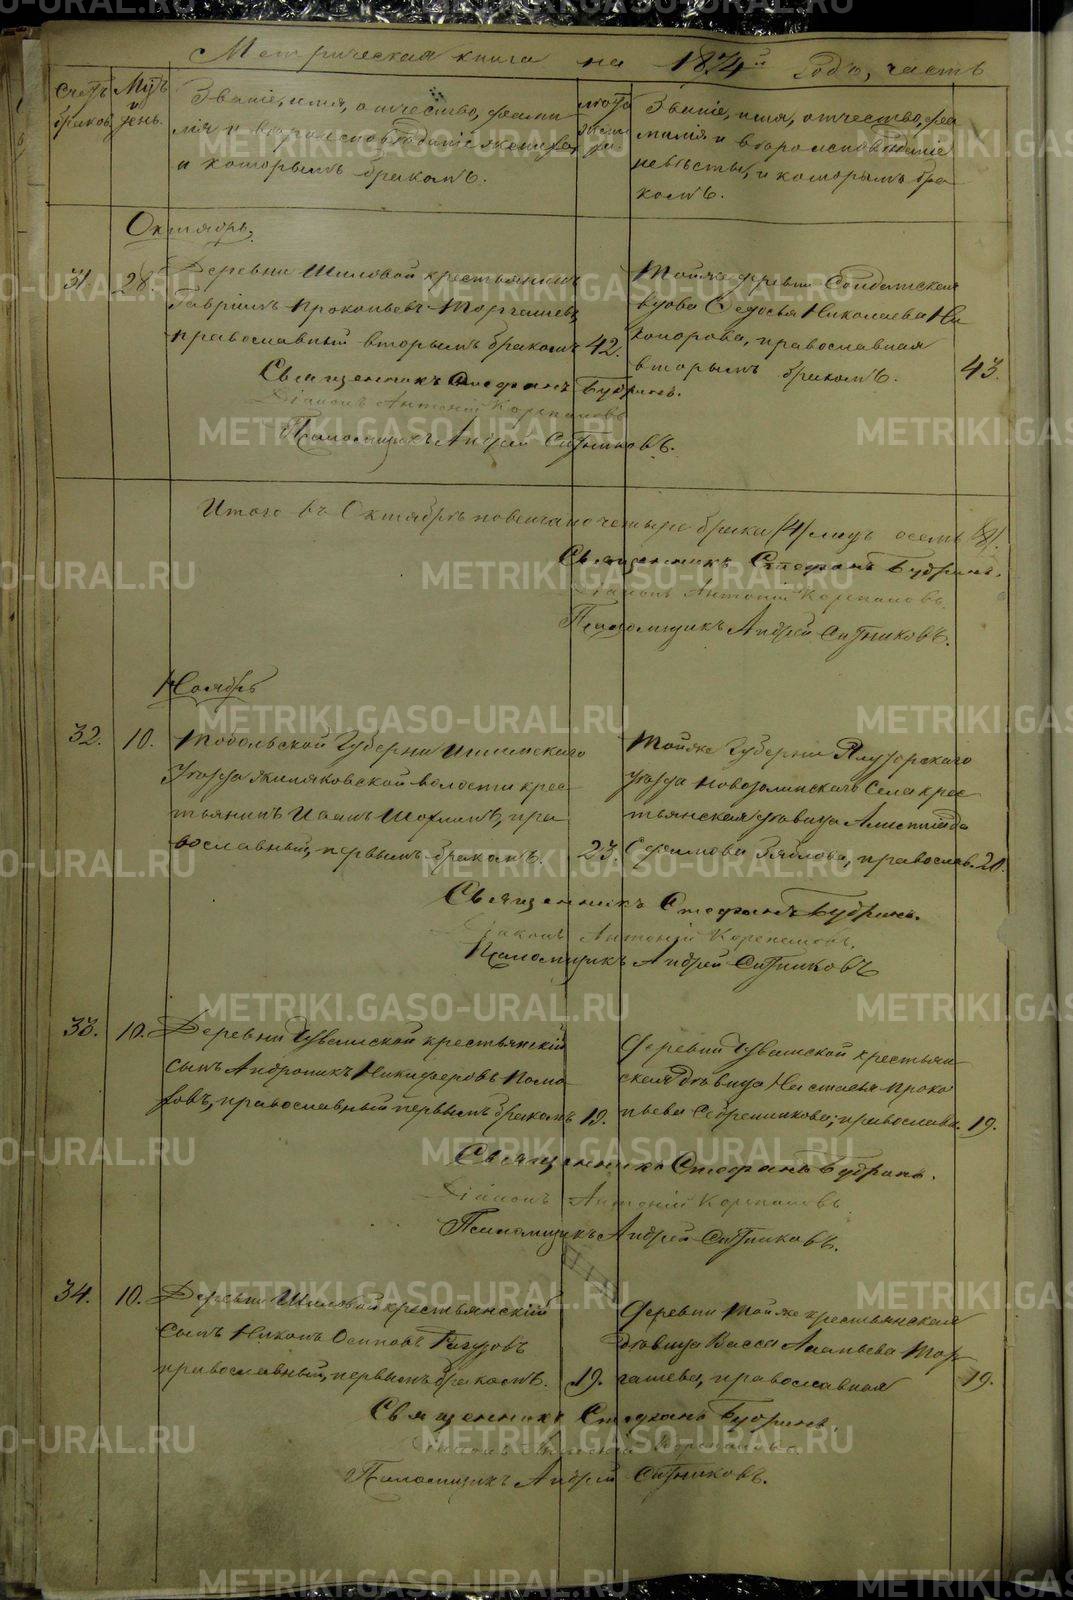 Метрическая книга на 1874й Годъ, часть
Счетъ браков.
Мцъ и день.
Званіе, имя, отчество, фами
лія и вѣроисповѣданіе жениха,
и которымъ бракомъ.
лѣта
Званіе, имя, отчество, фа
милія и вѣроисповѣданіе
невѣсты, и которымъ бра
комъ.
Октябрь.
31. 28. Деревни Шиловой крестьянинъ
Гавріилъ Прокопьевъ
православный вторымъ бракомъ 42.
Тойже деревни Солдатская
вдова Федосья Николаева Ни
конорова, православная
вторымъ бракомъ. 43.
Священникъ Стефанъ Бубринъ.
Діаконъ Антоній Корепановъ
Псаломщикъ Андрей Ситниковъ.
Итого въ Октябрѣ повенчано четыре брака (4) лицъ осемь (8).
Священникъ Стефанъ Бубринъ.
Діаконъ Антоній Корепановъ.
Псаломщикъ Андрей Ситниковъ.
Ноябрь
32. 10. Тобольской Губерни Ишимскаго
Уѣзда волости крес
тьянинъ Иванъ пра
вославный, первымъ бракомъ. 23.
Тойже Губерніи Ялуторскаго
уѣзда Села крес
тьянская дѣвица
Ефимова православ. 20.
Священникъ Стефанъ Бубринъ.
Діаконъ Антоній Корепановъ.
Псаломщикъ Андрей Ситниковъ
33. 10. Деревни крестьянскій
сынъ Андроникъ Никифоровъ
православный первымъ бракомъ 19.
Деревни крестьян
ская дѣвица Настасья Проко
пьева Серебренникова, православн. 19.
Священникъ Стефанъ Бубринъ.
Діаконъ Антоній Корепановъ
Псаломщикъ Андрей Ситниковъ.
34. 10. Деревни Шиловой крестьянскій
сынъ Никонъ Осиповъ
православный, первымъ бракомъ. 19.
Деревни Тойже крестьянская
дѣвица Васса Ананьева Тор
гашева, православная 19.
Священникъ Стефанъ Бубринъ.
Діаконъ Антоній Корепановъ
Псаломщикъ Андрей Ситниковъ.
METRIKI.GASO-URAL.RU